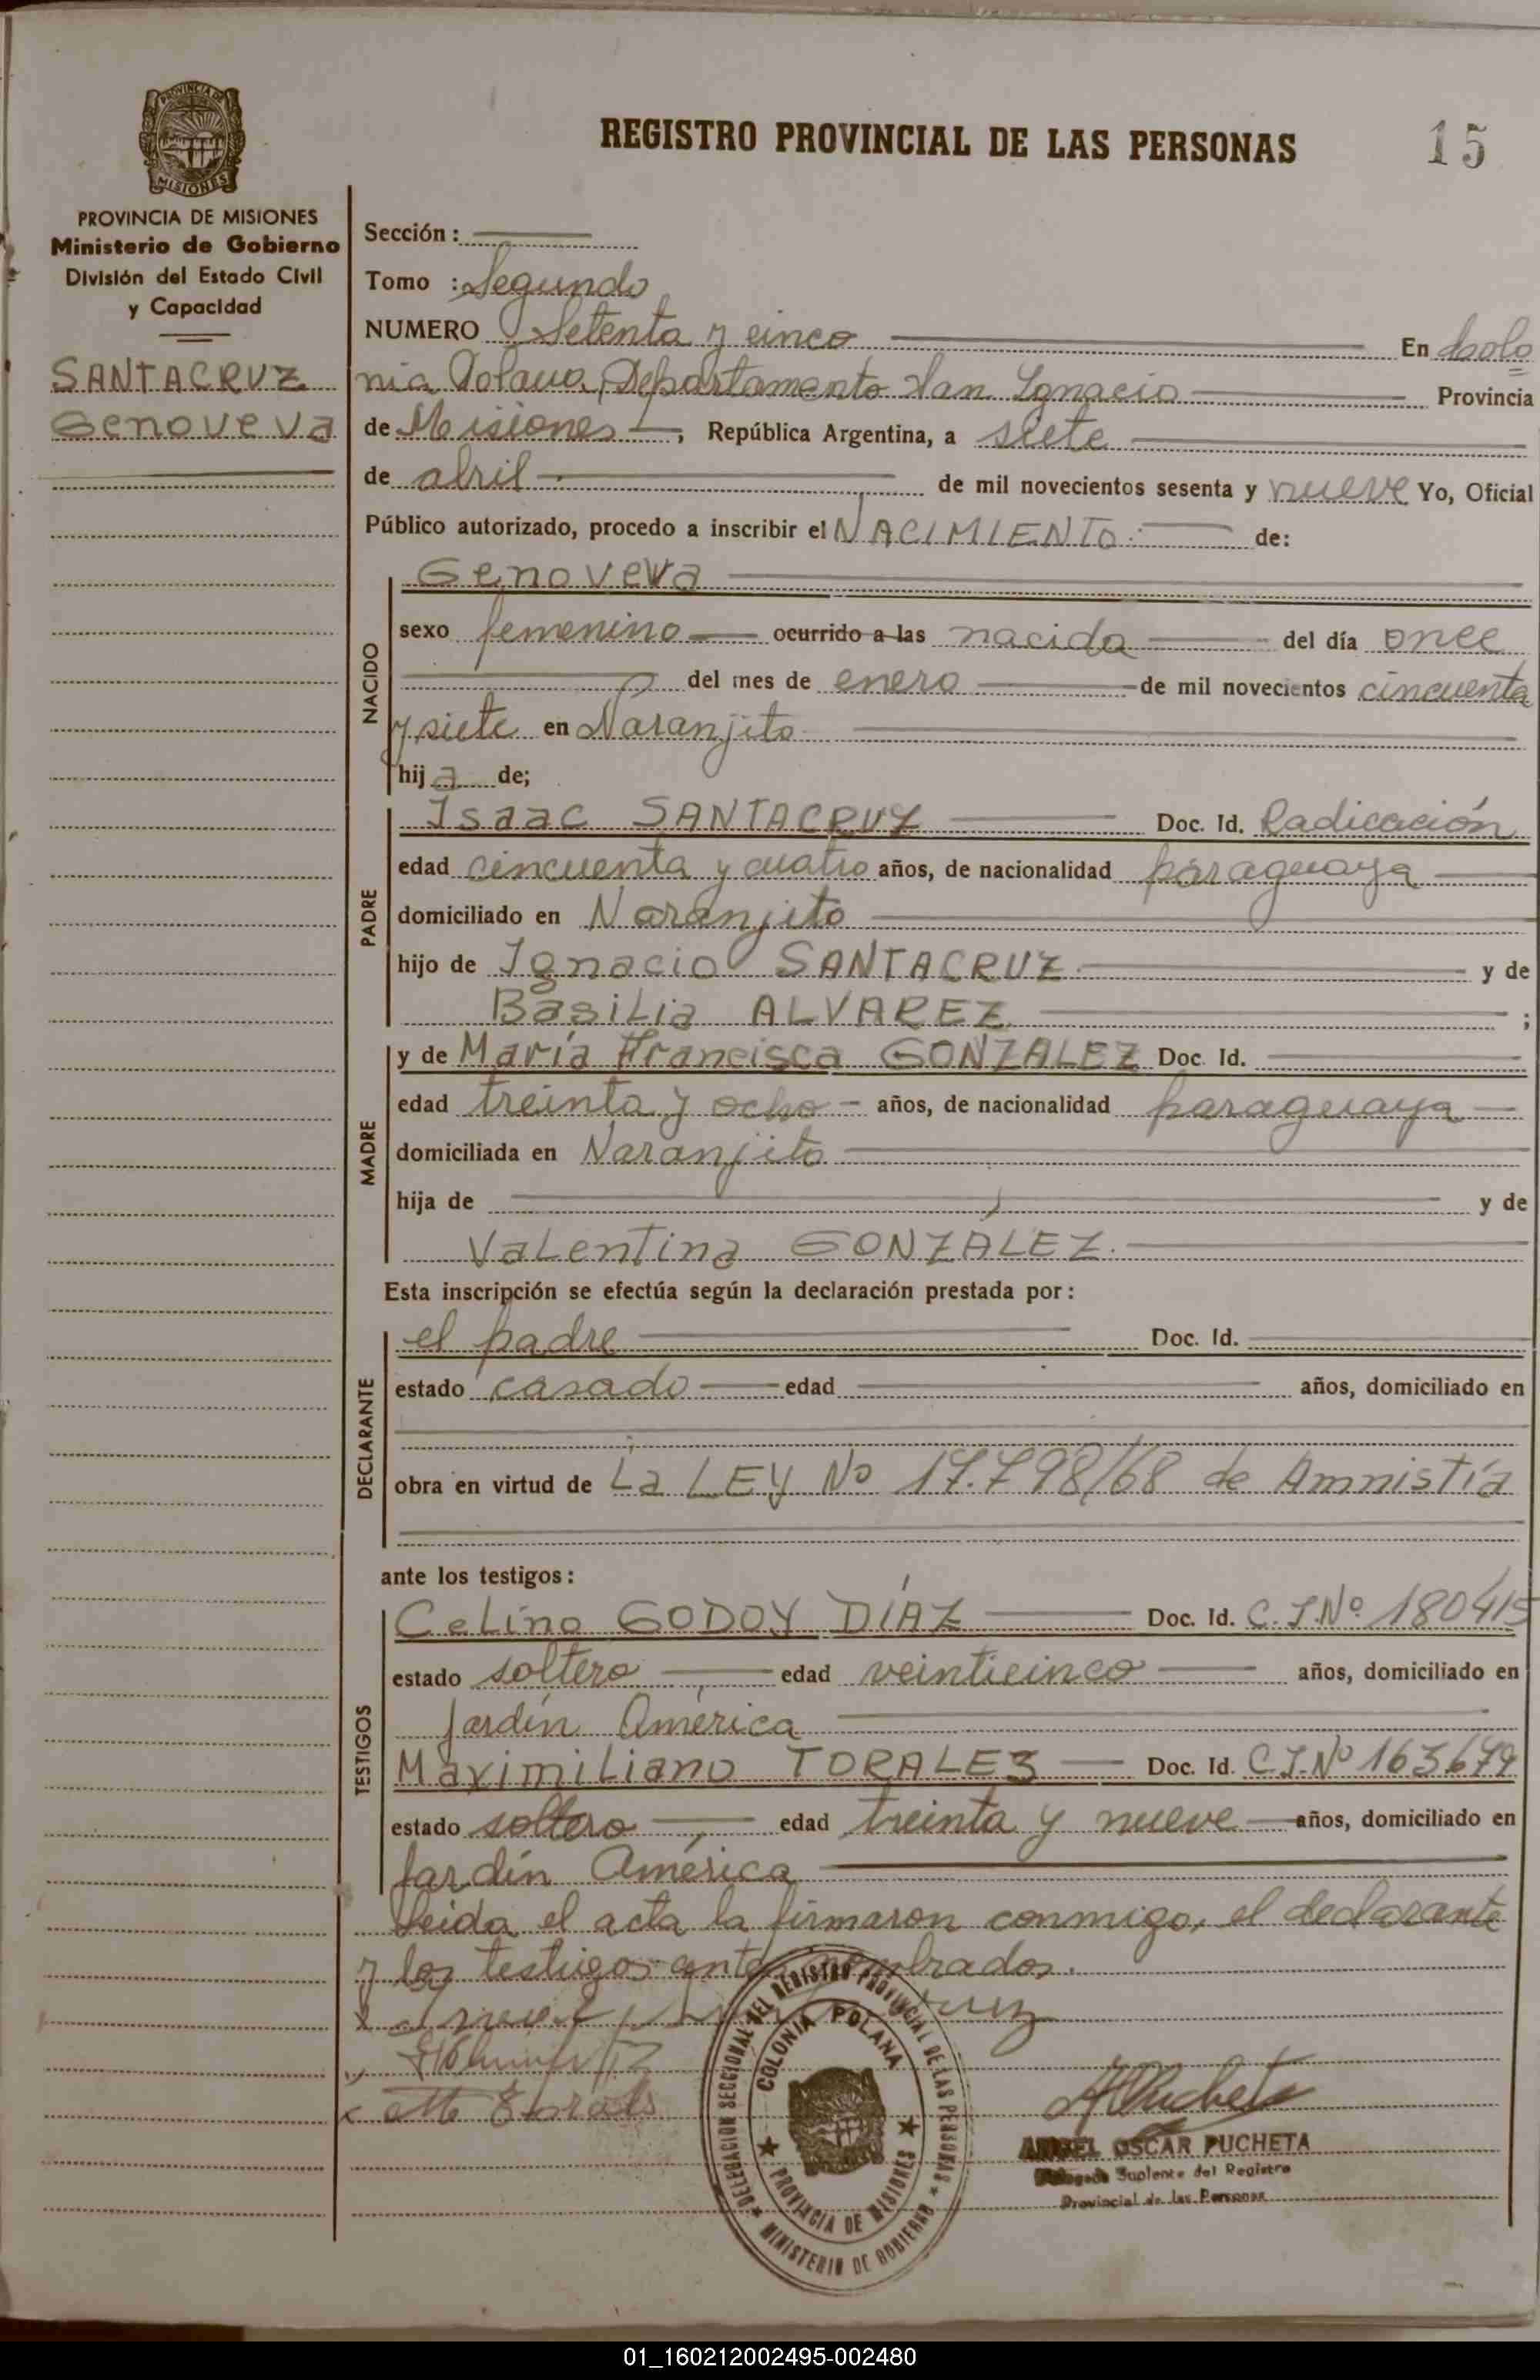 REGISTRO PROVINCIAL DE LAS PERSONAS
15
PROVINCIA DE MISIONES
MISIONES
PROVINCIA DE MISIONES
Ministerio de Gobierno
División del Estado Civil
y Capacidad
SANTACRUZ
Genoveva
Sección :
Tomo : Segundo
NUMERO Setenta y cinco En Colo
nia Polana, Departamento San Ignacio Provincia
de Misiones, República Argentina, a siete
de abril de mil novecientos sesenta y nueve Yo, Oficial
Público autorizado, procedo a inscribir el NACIMIENTO. de:
NACIDO
Genoveva
sexo femenino ocurrido a las nacida del día once
del mes de enero de mil novecientos cincuenta
y siete en Naranjito
hija de;
PADRE
Isaac SANTACRUZ Doc. Id. Radicación
edad cincuenta y cuatro años, de nacionalidad paraguaya
domiciliado en Naranjito
hijo de Ignacio SANTACRUZ y de
Basilia ALVAREZ ;
MADRE
y de María Francisca GONZALEZ Doc. Id.
edad treinta y ocho - años, de nacionalidad paraguaya
domiciliada en Naranjito
hija de y de
Valentina GONZÁLEZ.
Esta inscripción se efectúa según la declaración prestada por :
DECLARANTE
el padre Doc. Id.
estado casado edad años, domiciliado en
obra en virtud de La LEY No 17.798/68 de Amnistía
ante los testigos :
TESTIGOS
Celino GODOY DÍAZ Doc. Id. C.I.Nº 180415
estado soltero edad veinticinco años, domiciliado en
Jardín América
Maximiliano TORALES Doc. Id. C.I.Nº 163679
estado soltero, edad treinta y nueve años, domiciliado en
Jardín América
Leida el acta la firmaron conmigo, el declarante
y los testigos antes nombrados.
DELEGACION SECCIONAL DEL REGISTRO PROVINCIAL DE LAS PERSONAS
MINISTERIO DE GOBIERNO
COLONIA POLANA
PROVINCIA DE MISIONES
ANGEL OSCAR PUCHETA
Delegado Suplente del Registro
Provincial de las Personas
01_160212002495-002480